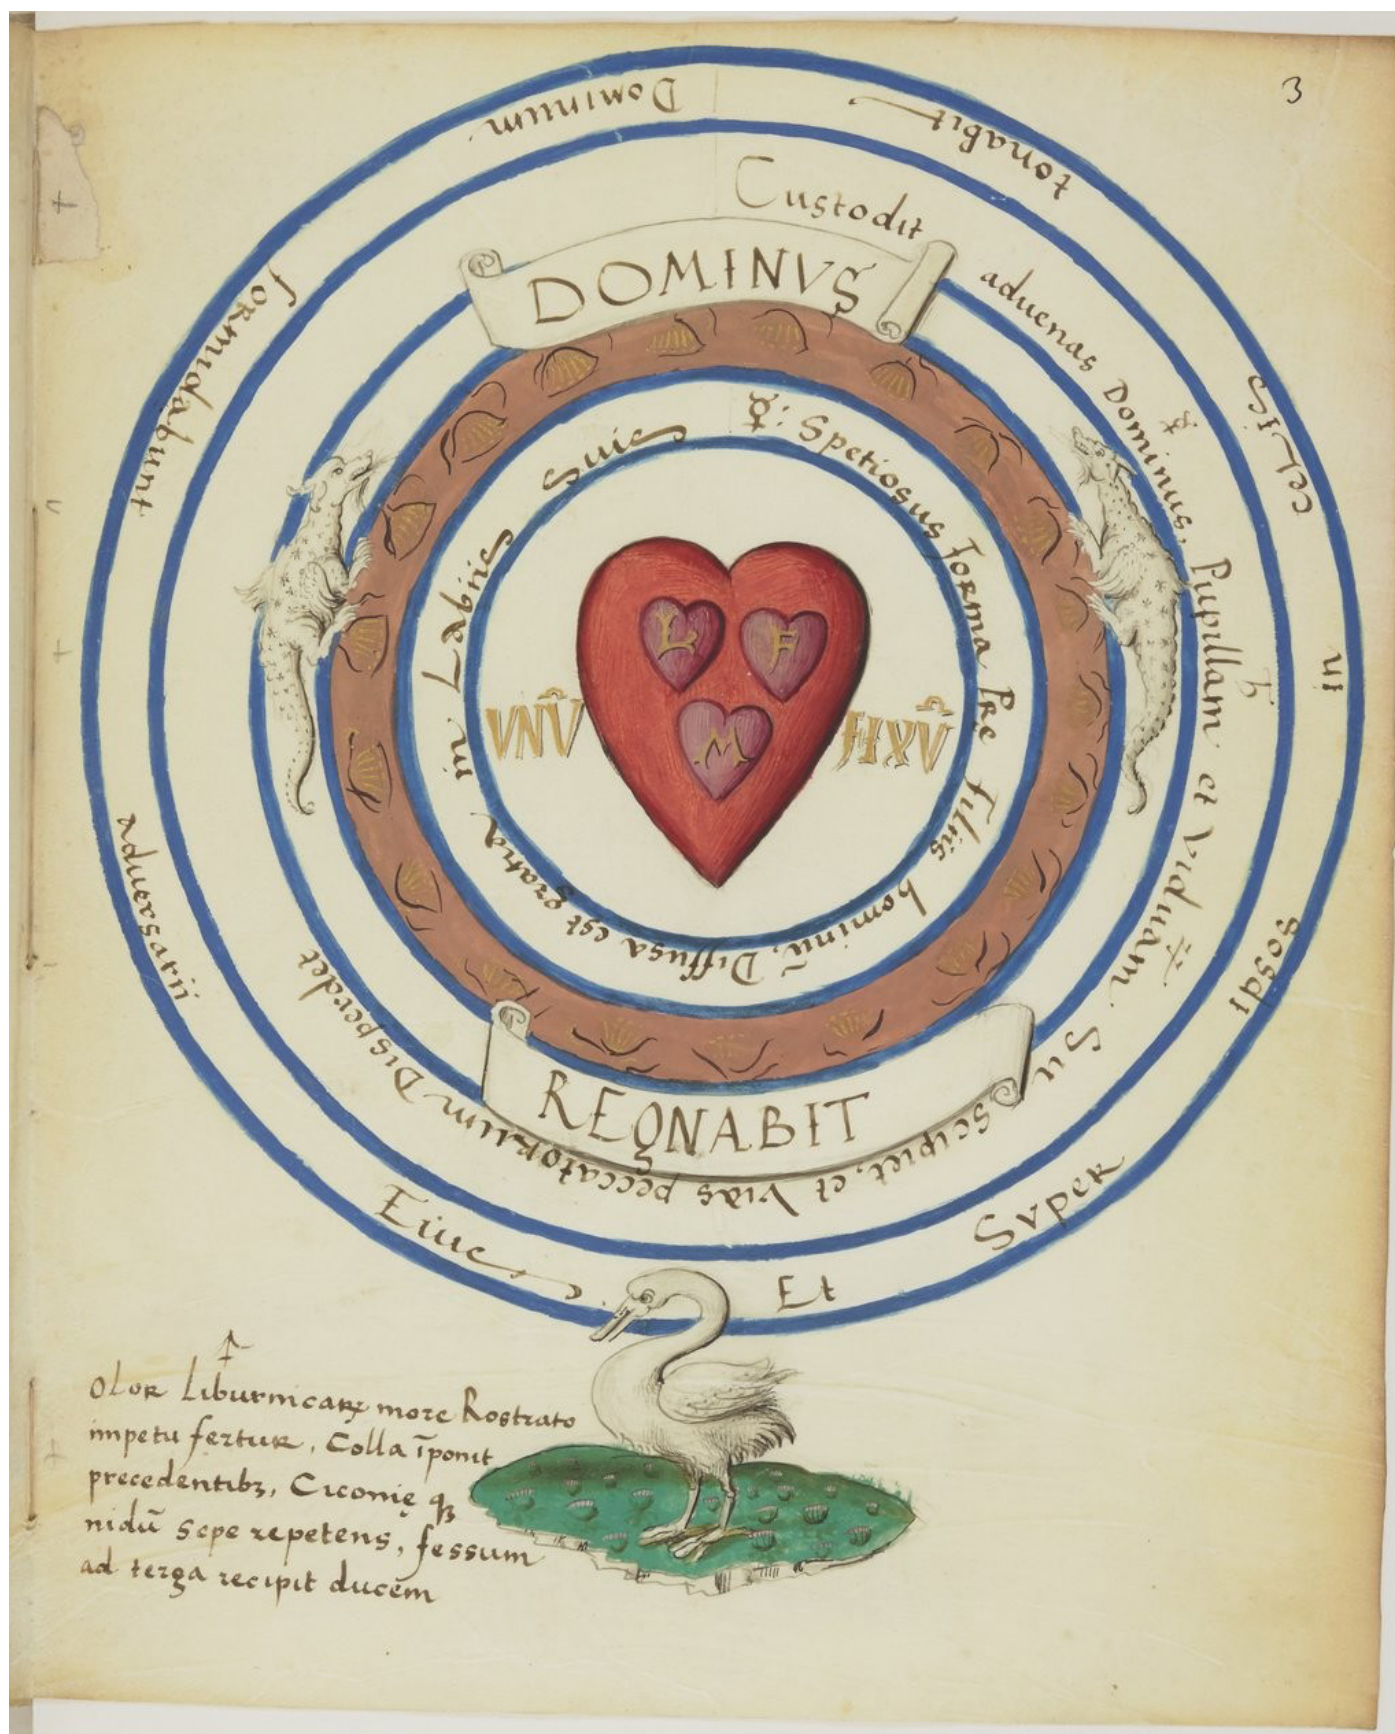 3
Dominum formidabunt adversarii Eius Et Super Ipsos in celis tonabit
Custodit aduenas Dominus, Pupillam et Viduam Suscipiet, et Vias peccatorum Disperdet
DOMINVS
☿: Spetiosus forma Prę filiis hominū, Diffusa est gratia in Labiis Suis
L F
M
VNV̂ FIXV̂
REGNABIT
OLOR Liburnicarꝝ more Rostrato
impetu fertur, Colla īponit
precedentibꝫ, Ciconię qꝫ
nidū sepe repetens, fessum
ad terga recipit ducem